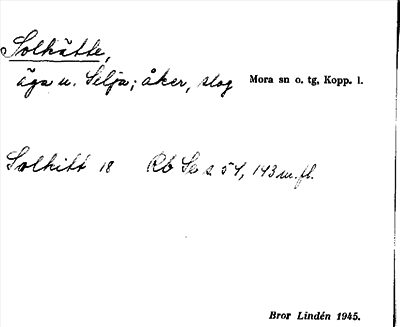 Solhätte,
äga u. Selja; åker, slog Mora sn o. tg, Kopp. l.
Solhitt 18 Rb Se s 54, 143 m.fl.
Bror Lindén 1945.